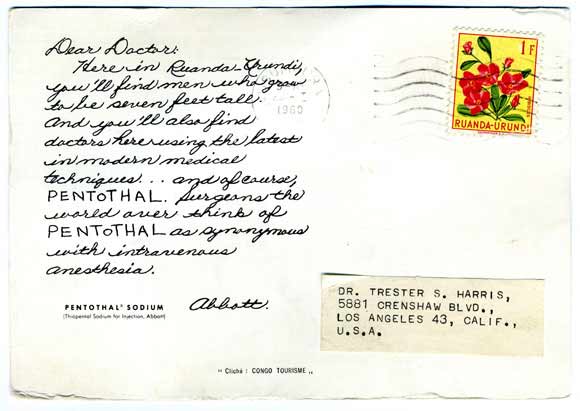 Dear Doctor:
Here in Ruanda-Urundi,
you'll find men who grow
to be seven feet tall.
And you'll also find
doctors here using the latest
in modern medical
techniques . . and of course,
PENTOTHAL. Surgeons the
world over think of
PENTOTHAL as synonymous
with intravenous
anesthesia.
Abbott.
PENTOTHAL® SODIUM
(Thiopental Sodium for Injection, Abbott)
1960
1 F
RUANDA-URUNDI
DR. TRESTER S. HARRIS,
5881 CRENSHAW BLVD.,
LOS ANGELES 43, CALIF.,
U.S.A.
" Cliché : CONGO TOURISME „